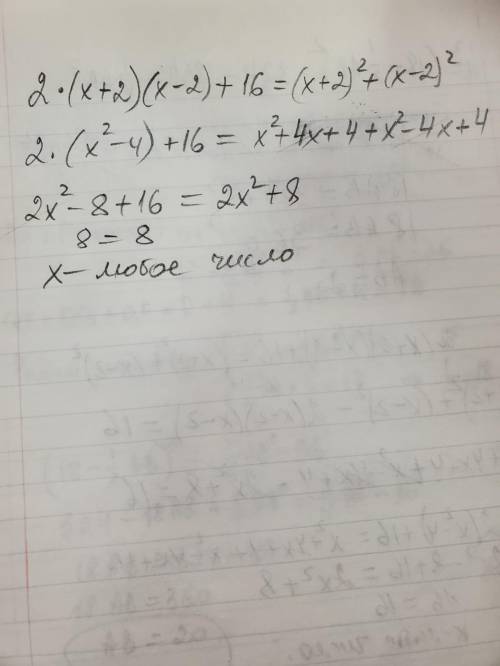 2·(x+2)(x-2)+16=(x+2)²+(x-2)²
2·(x²-4)+16= x²+4x+4+x²-4x+4
2x²-8+16 = 2x²+8
8=8
x-любое число